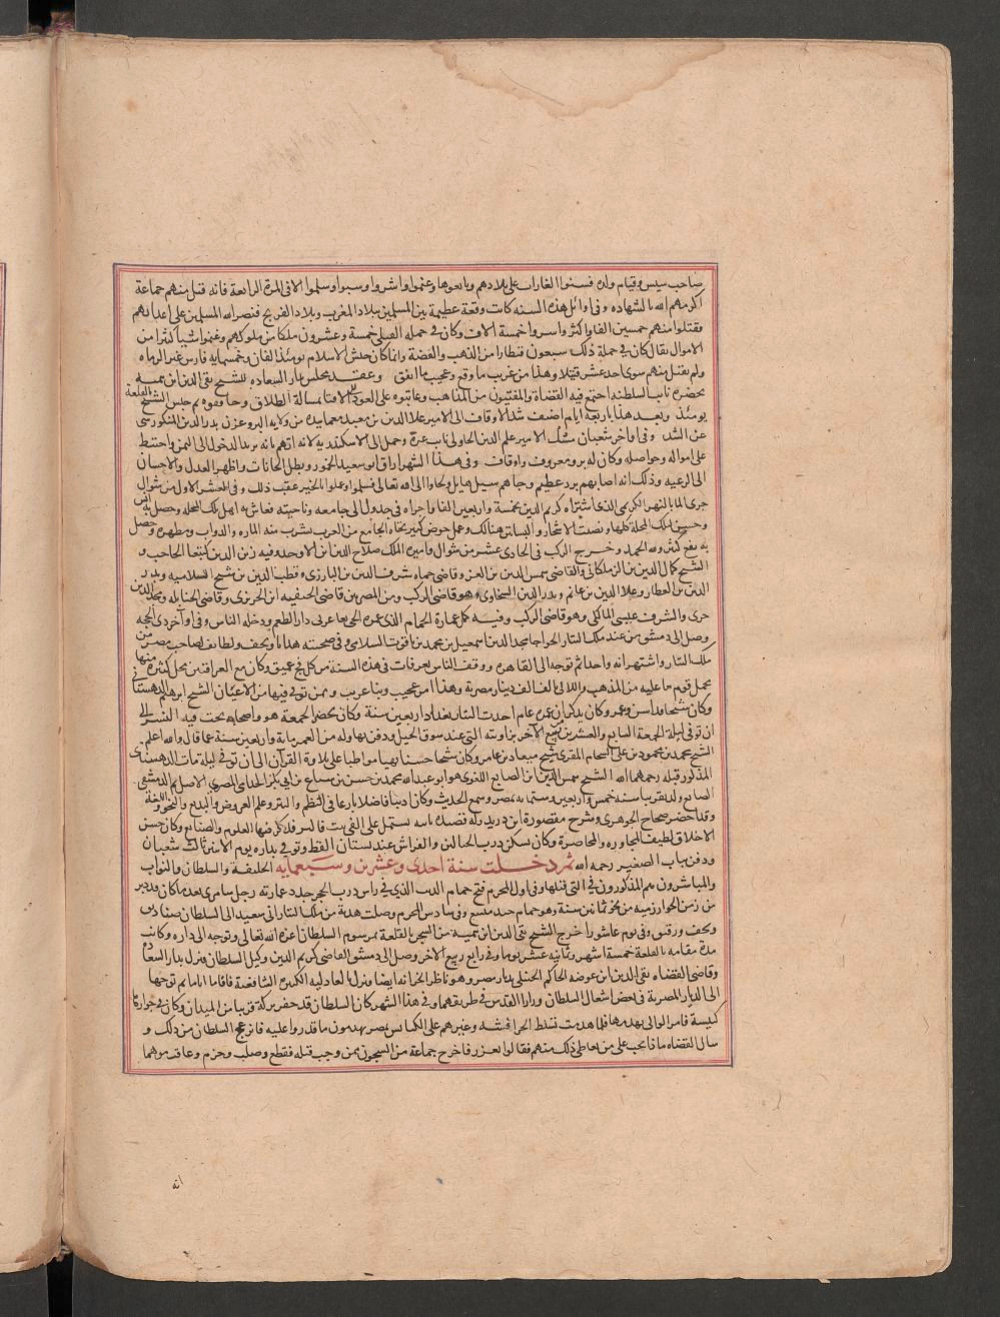 صاحب سيس وقيام ولده فسنوا الغارات على بلادهم وتابعوها وغنموا واسروا وسبوا وسلموا الا فى المرة الرابعة فانه قتل منهم جماعة
اكرمهم الله بالشهاده وفى اوائل هذه السنه كانت وقعة عظيمة بين المسلمين ببلاد المغرب وبلاد الفرنج فنصر الله المسلمين على اعدائهم
فقتلوا منهم خمسين الفا واكثر واسروا خمسة الاف وكان فى جملة القتلى خمسة وعشرون ملكا من ملوكهم وغنموا شيا كثيرا من
الاموال يقال كان فى جملة ذلك سبعون قنطارا من الذهب والفضة وانما كان جيش الاسلام يومئذ الفان وخمسمايه فارس غير الرماه
ولم يقتل منهم سوى احد عشر قتيلا وهذا من غريب ما وقع وعجيب ما اتفق وعقد مجلس بدار السعاده للشيخ تقى الدين ابن تيميه
بحضرة نايب السلطنه اجتمع فيه القضاة والمفتيون من المذاهب وعاتبوه على العود الى الافتا بمسالة الطلاق وحاققوه ثم حبس الشيخ بالقلعة
يومئذ وبعد هذا باربعة ايام اضيف شد الاوقاف الى الامير علا الدين بن معبد مع ما بيده من ولايه البر وعزل بدر الدين المنكورسى
عن الشد وفى اواخر شعبان مسك الامير علم الدين الجاولى نايب غزة وحمل الى الاسكندريه لانه اتهم بانه يريد الدخول الى اليمن واحتيط
على امواله وحواصله وكان له بر ومعروف واوقاف وفى هذا الشهر اراق ابو سعيد الخمور وبطل الحانات واظهر العدل والاحسان
الى الرعيه وذلك انه اصابهم برد عظيم وجاهم سيل هايل ولجاوا الى الله تعالى فسلموا وعملوا الخير عقب ذلك وفى العشر الاول من شوال
جرى الما بالنهر الكريمى الذى اشتراه كريم الدين بخمسة واربعين الفا واجراه فى جدول الى جامعه وناحيته فعاش به اهل تلك المحلة وحصل به انس
وحسن تلك المحلة كلها ونصبت الاشجار والبساتين هنالك وعمل حوض كبير تجاه الجامع من الغرب يشرب منه الماره والدواب ومطهره وحصل
به نفع كثير ولله الحمد وخرج الركب فى الحادى عشر من شوال واميره الملك صلاح الدين ابن الاوحد وفيه زين الدين كتبغا الحاجب و
الشيخ كمال الدين بن الزملكانى والقاضى شمس الدين بن العز وقاضى حماه شرف الدين بن البارزى وقطب الدين بن شيخ السلاميه وبدر
الدين بن العطار وعلا الدين بن غانم وبدر الدين السخاوى وهو قاضى الركب ومن المصريين قاضى الحنفيه ابن الحريرى وقاضى الحنابله ومجد الدين
حرى والشرف عيسى المالكى وهو قاضى الركب وفيه كمل عمارة الحمام الذى عمره الجيبغا غربى دار الطعم ودخله الناس وفى اواخر ذى الحجه
وصل الى دمشق من عند ملك التتار الخواجا مجد الدين اسمعيل بن محمد بن ياقوت السلامى وفى صحبته هدايا وتحف ولطايف لصاحب مصر من
ملك التتار واشتهر انه واحد ثم توجه الى القاهره ووقف الناس بعرفات فى هذه السنة من كل فج عميق وكان مع العراقيين محمل كثيره منها
محمل قوم ما عليه من الذهب واللالى الف الف دينار مصرية وهذا امر عجيب وبنا غريب وممن توفى فيها من الاعيان الشيخ ابرهيم الدهستانى
وكان شيخا قد اسن وعمر وكان يذكر ان عمره عام اخذت التتار بغداد اربعين سنة وكان يحضر الجمعة هو واصحابه تحت قبه النسر الى
ان توفى ليلة الجمعة السابع والعشرين ربيع الاخر بزاويته التى عند سوق الخيل ودفن بها وله من العمر مايه واربعين سنة كما قال والله اعلم
الشيخ محمد بن محمود بن على الشحام المقرى شيخ ميعاد ابن عامر وكان شيخا حسنا بهيا مواظبا على تلاوة القران الى ان توفى ليلة مات الدهستانى
المذكور قبله رحمهما الله الشيخ شمس الدين ابن الصايغ اللغوى هو ابو عبد الله محمد بن حسن بن سباع بن ابى بكر الجذامى المصرى الاصل ثم الدمشقى
الصايغ ولد تقريبا سنه خمس واربعين وستمايه بمصر وسمع الحديث وكان اديبا فاضلا بارعا فى النظم والنثر وعلم العروض والبديع والنحو واللغة
وقد اختصر صحاح الجوهرى وشرح مقصورة ابن دريد وله قصيده تاييه تشتمل على الفى بيت فاكثر قد ذكر فيها العلوم والصنايع وكان حسن
الاخلاق لطيف المحاوره والمحاضرة وكان يسكن درب الحبالين والفراش عند بستان القط وتوفى بداره يوم الاثنين ثالث شعبان
ودفن بباب الصغير رحمه الله ثم دخلت سنة احدى وعشرين وسبعمايه الخليفة والسلطان والنواب
والمباشرون هم المذكورون فى التى قبلها وفى اول المحرم فتح حمام الزيت الذى فى راس درب الحجر جدد عمارته رجل سامرى بعد ما كان قد دثر
من زمن الخوارزميه من نحو ثمانين سنة وهو حمام جيد متسع وفى سادس المحرم وصلت هدية من ملك التتار ابى سعيد الى السلطان صناديق
وتحف ورقيق وفى يوم عاشورا خرج الشيخ تقى الدين ابن تيميه من السجن بالقلعة بمرسوم السلطان اعزه الله تعالى وتوجه الى داره وكانت
مدة مقامه بالقلعة خمسة اشهر وثمانيه عشر يوما وفى رابع ربيع الاخر وصل الى دمشق القاضى كريم الدين وكيل السلطان فنزل بدار السعاده
وقاضى القضاه تقى الدين ابن عوض الحاكم الحنبلى بديار مصر وهو ناظر الخزانه ايضا فنزل بالعادليه الكبيره الشافعية فاقاما اياما ثم توجها
الى الديار المصرية فى بعض اشغال السلطان وزارا القدس فى طريقهما وفى هذا الشهر كان السلطان قد حفر بركة قريبا من الميدان وكان فى جوارها
كنيسة فامر الوالى بهدمها فلما هدمت تسلط الحرافشه وغيرهم على الكنايس بمصر يهدمون ما قدروا عليه فانزعج السلطان من ذلك و
سال القضاه ماذا يجب على من تعاطى ذلك منهم فقالوا يعزر فاخرج جماعة من السجون ممن وجب قتله فقطع وصلب وحزم وعاقب موهما
انه